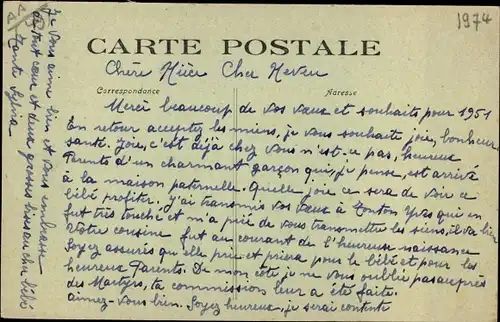 1974
CARTE POSTALE
Chère Nièce Cher Neveu
Correspondance
Adresse
Merci beaucoup de vos vœux et souhaits pour 1951
En retour acceptez les miens, je vous souhaite joie, bonheur
santé. Joie, c'est déjà chez vous n'est-ce pas, heureux
Parents d'un charmant garçon qui, je pense, est arrivé
à la maison paternelle. Quelle joie ce sera de voir ce
bébé profiter. J'ai transmis vos vœux à tonton Yves qui en
fut très touché et m'a prié de vous transmettre les siens, il va bien
Votre cousine fut au courant de l'heureuse naissance
Soyez assurés qu'elle prie et priera pour le bébé et pour les
heureux Parents. De mon côté je ne vous oublie pas auprès
des Martyrs, ta commission leur a été faite.
aimez-vous bien. Soyez heureux, je serai contente
Je vous aime bien et vous embrasse
de tout cœur et deux grosses bises au cher bébé
Tante